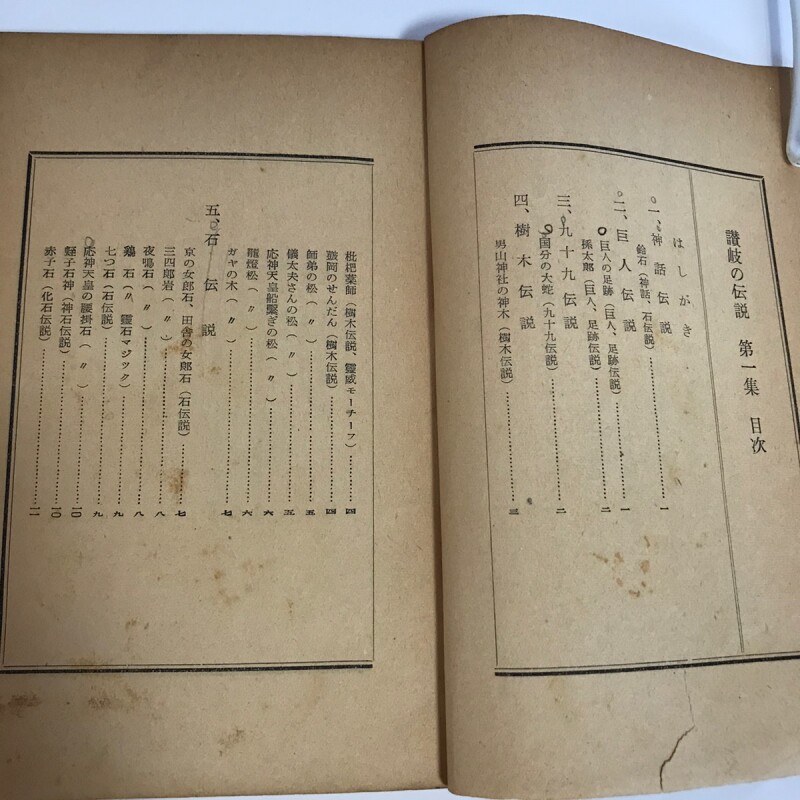 讃岐の伝説 第一集 目次
はしがき
一、神話伝説
鈴石(神話、石伝説)……一
二、巨人伝説……一
巨人の足跡(巨人、足跡伝説)……二
孫太郎(巨人、足跡伝説)
三、九十九伝説
国分の大蛇(九十九伝説)……二
四、樹木伝説
男山神社の神木(樹木伝説)……三
枇杷薬師(樹木伝説、霊威モーチーフ)……四
岡のせんだん(樹木伝説)……四
師弟の松(〃)……五
儀太夫さんの松(〃)……五
応神天皇船繫ぎの松(〃)……六
龍燈松(〃)……六
ガヤの木(〃)……七
五、石伝説
京の女郎石、田舎の女郎石(石伝説)……七
三四郎岩(〃)……八
夜鳴石(〃)……八
鶏石(〃、靈石マジック)……九
七つ石(石伝説)……九
応神天皇の腰掛石(〃)……一〇
蛭子石神(神石伝説)……一〇
赤子石(化石伝説)……一一